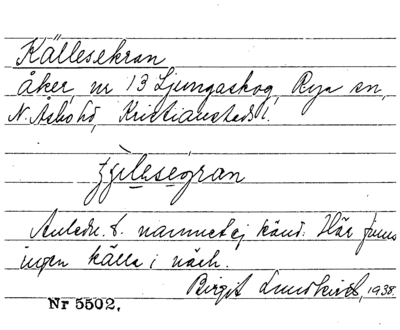 Källesekran
åker, nr 13 Ljungaskog, Rya sn,
N. Åsbo hd, Kristianstads l.
Anledn. t. namnet ej känd. Här finns
ingen källa i närh.
Birgit Lundkvist, 1938.
Nr 5502.